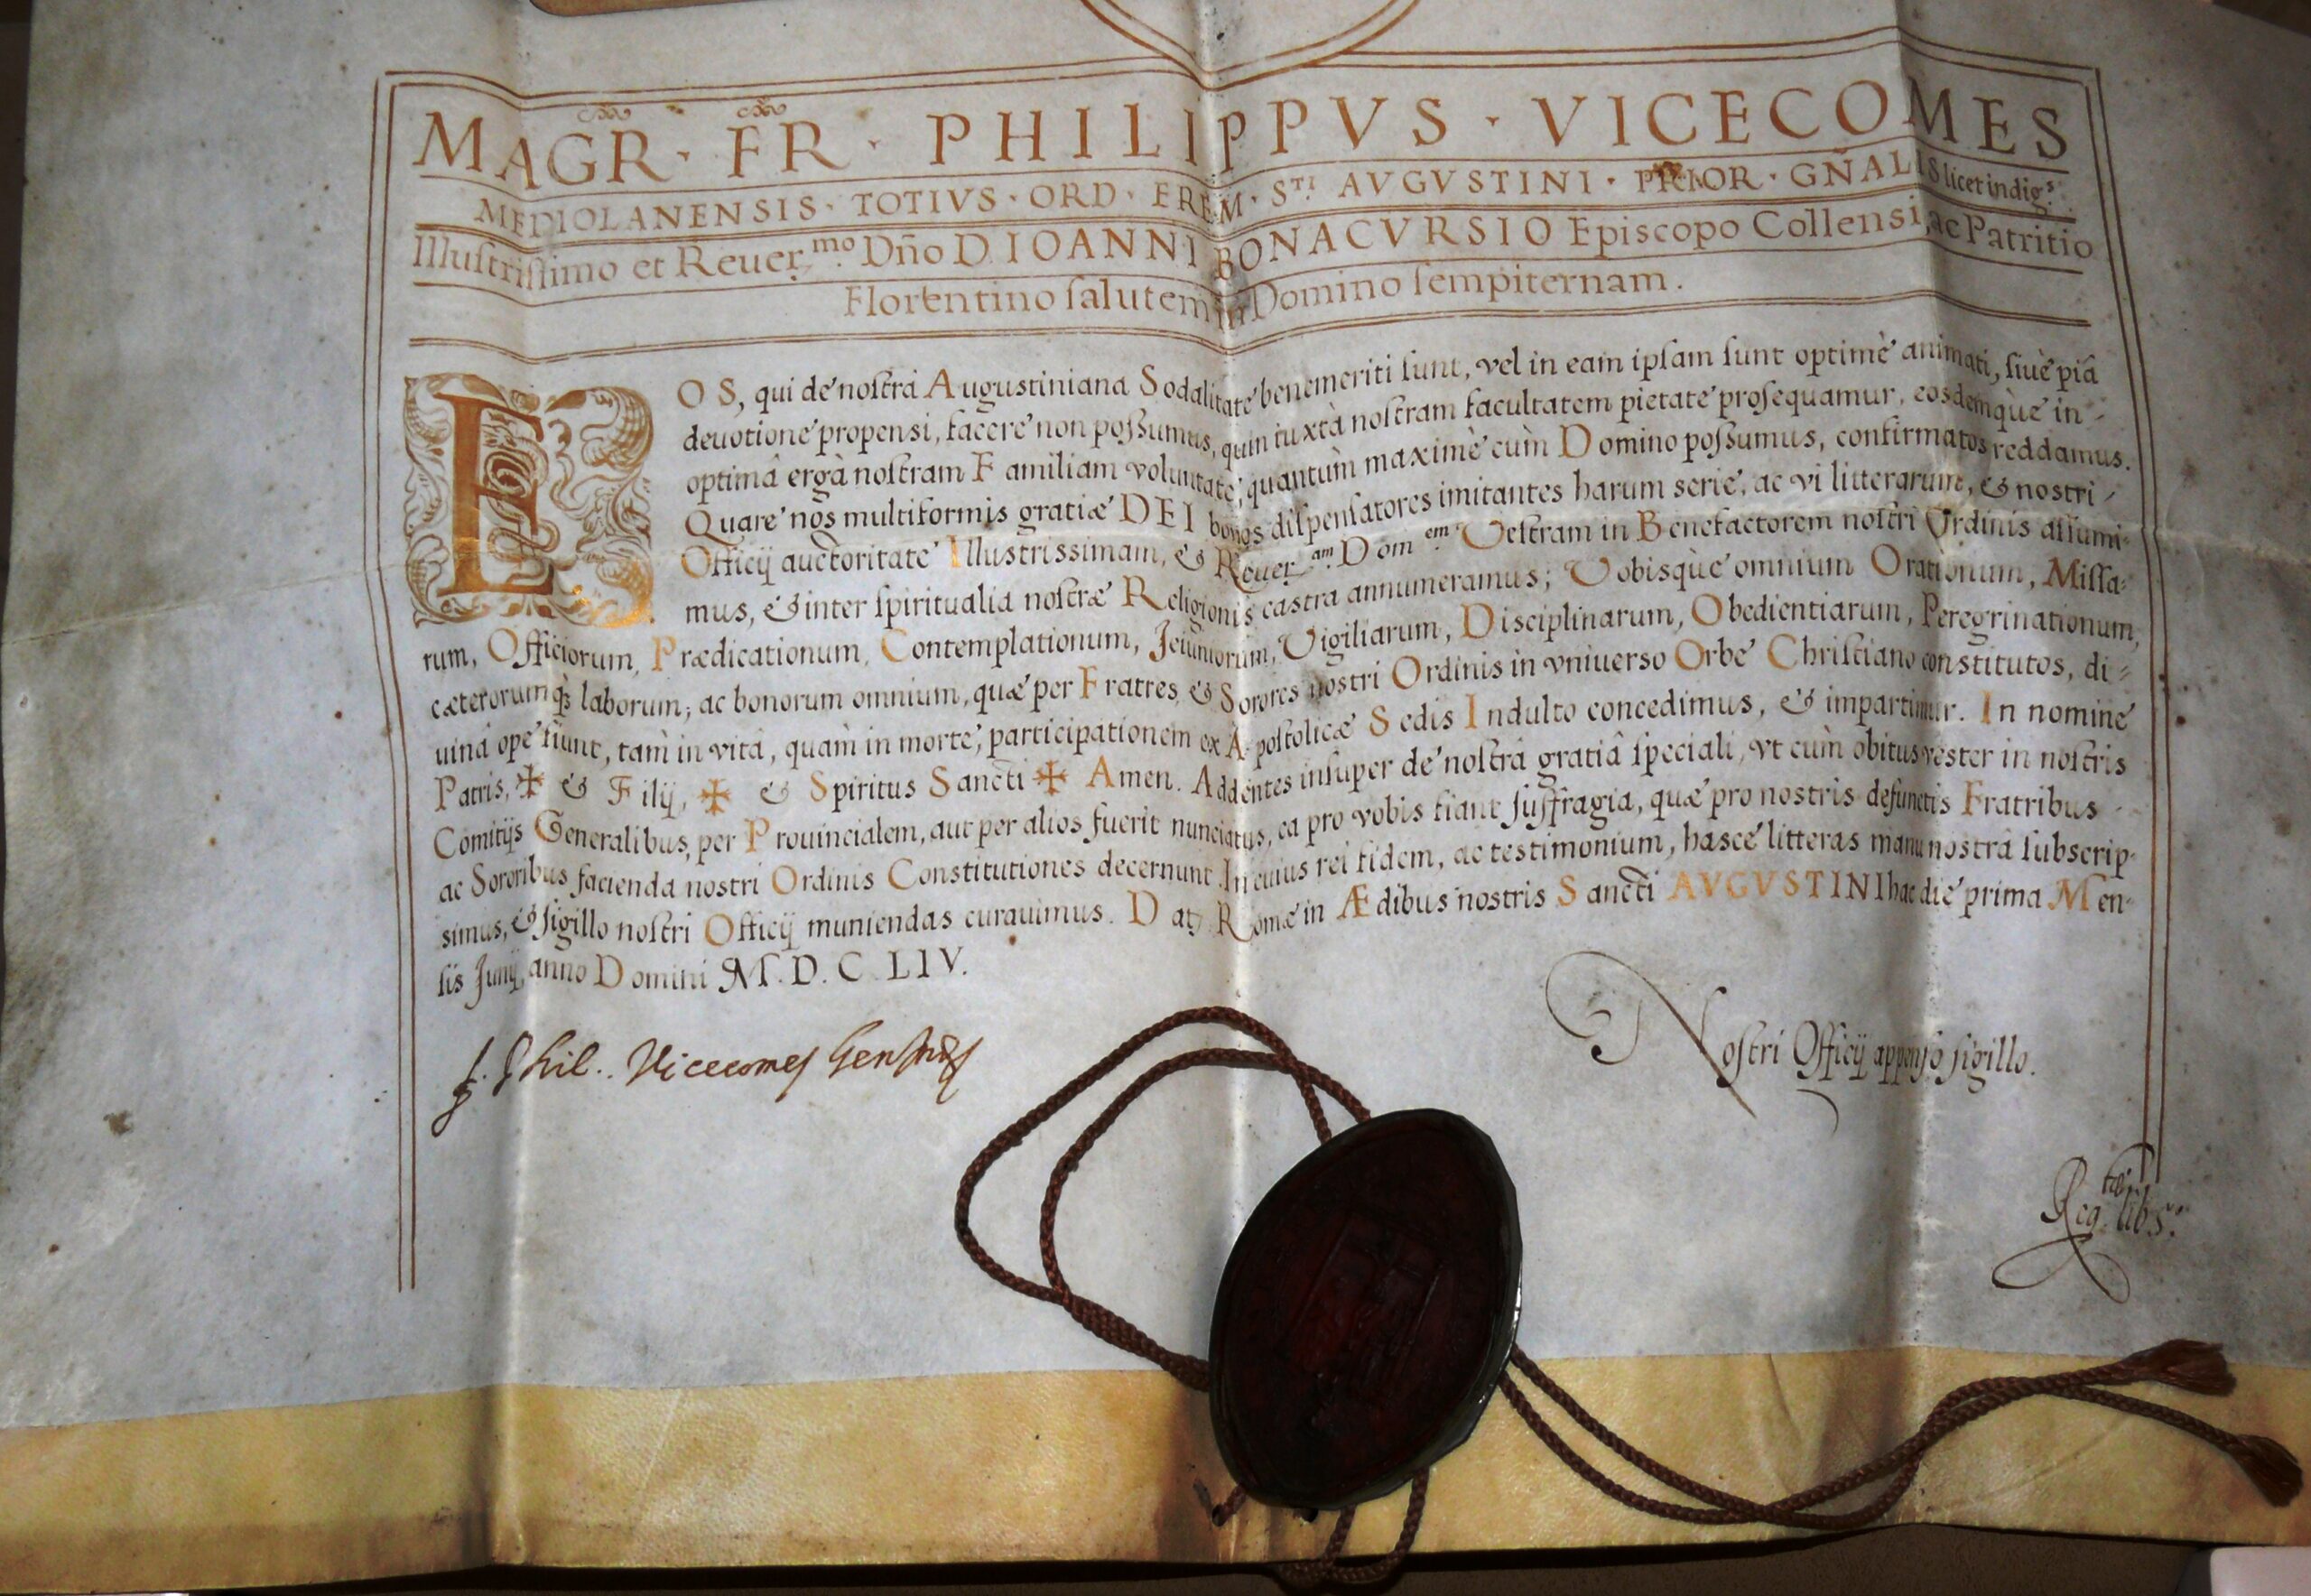 MAGR · FR · PHILIPPVS · VICECOMES
MEDIOLANENSIS · TOTIVS · ORD · EREM · S.TI AVGVSTINI · PRIOR · GÑALIS licet indig.s
Illustrissimo et Reuer.mo Dño D. IOANNI BONACVRSIO Episcopo Collensi, ac Patritio
Florentino salutem in Domino sempiternam.
EOS, qui de nostrâ Augustiniana Sodalitate benemeriti sunt, vel in eam ipsam sunt optimè animati, siuè piâ
deuotione propensi, facere non possumus, quin iuxtà nostram facultatem pietate prosequamur, eosdemquè in
optimâ ergà nostram Familiam voluntate, quantùm maximè cùm Domino possumus, confirmatos reddamus.
Quare nos multiformis gratiæ DEI bonos dispensatores imitantes harum serie, ac vi litterarum, & nostri
Officij auctoritate Illustrissimam, & Reuer.am Dom.em Vestram in Benefactorem nostri Ordinis assumi-
mus, & inter spiritualia nostræ Religionis castra annumeramus; Vobisquè omnium Orationum, Missa-
rum, Officiorum, Prædicationum, Contemplationum, Jeiuniorum, Vigiliarum, Disciplinarum, Obedientiarum, Peregrinationum,
cæterorumq; laborum, ac bonorum omnium, quæ per Fratres, & Sorores nostri Ordinis in vniuerso Orbe Christiano constitutos, di-
uinâ ope fiunt, tàm in vitâ, quàm in morte, participationem ex Apostolicæ Sedis Indulto concedimus, & impartimur. In nomine
Patris, ✠ & Filij, ✠ & Spiritus Sancti ✠ Amen. Addentes insuper de nostrâ gratiâ speciali, vt cùm obitus vester in nostris
Comitijs Generalibus, per Prouincialem, aut per alios fuerit nunciatus, ea pro vobis fiant suffragia, quæ pro nostris defunctis Fratribus
ac Sororibus facienda nostri Ordinis Constitutiones decernunt. In cuius rei fidem, ac testimonium, hasce litteras manu nostrâ subscrip-
simus, & sigillo nostri Officij muniendas curauimus. Dat. Romæ in Ædibus nostris Sancti AVGVSTINI hac die prima Men-
sis Junij, anno Domini M.D.C.LIV.
f. Phil. Vicecomes
Nostri Officij appenso sigillo.
Reg. lib.